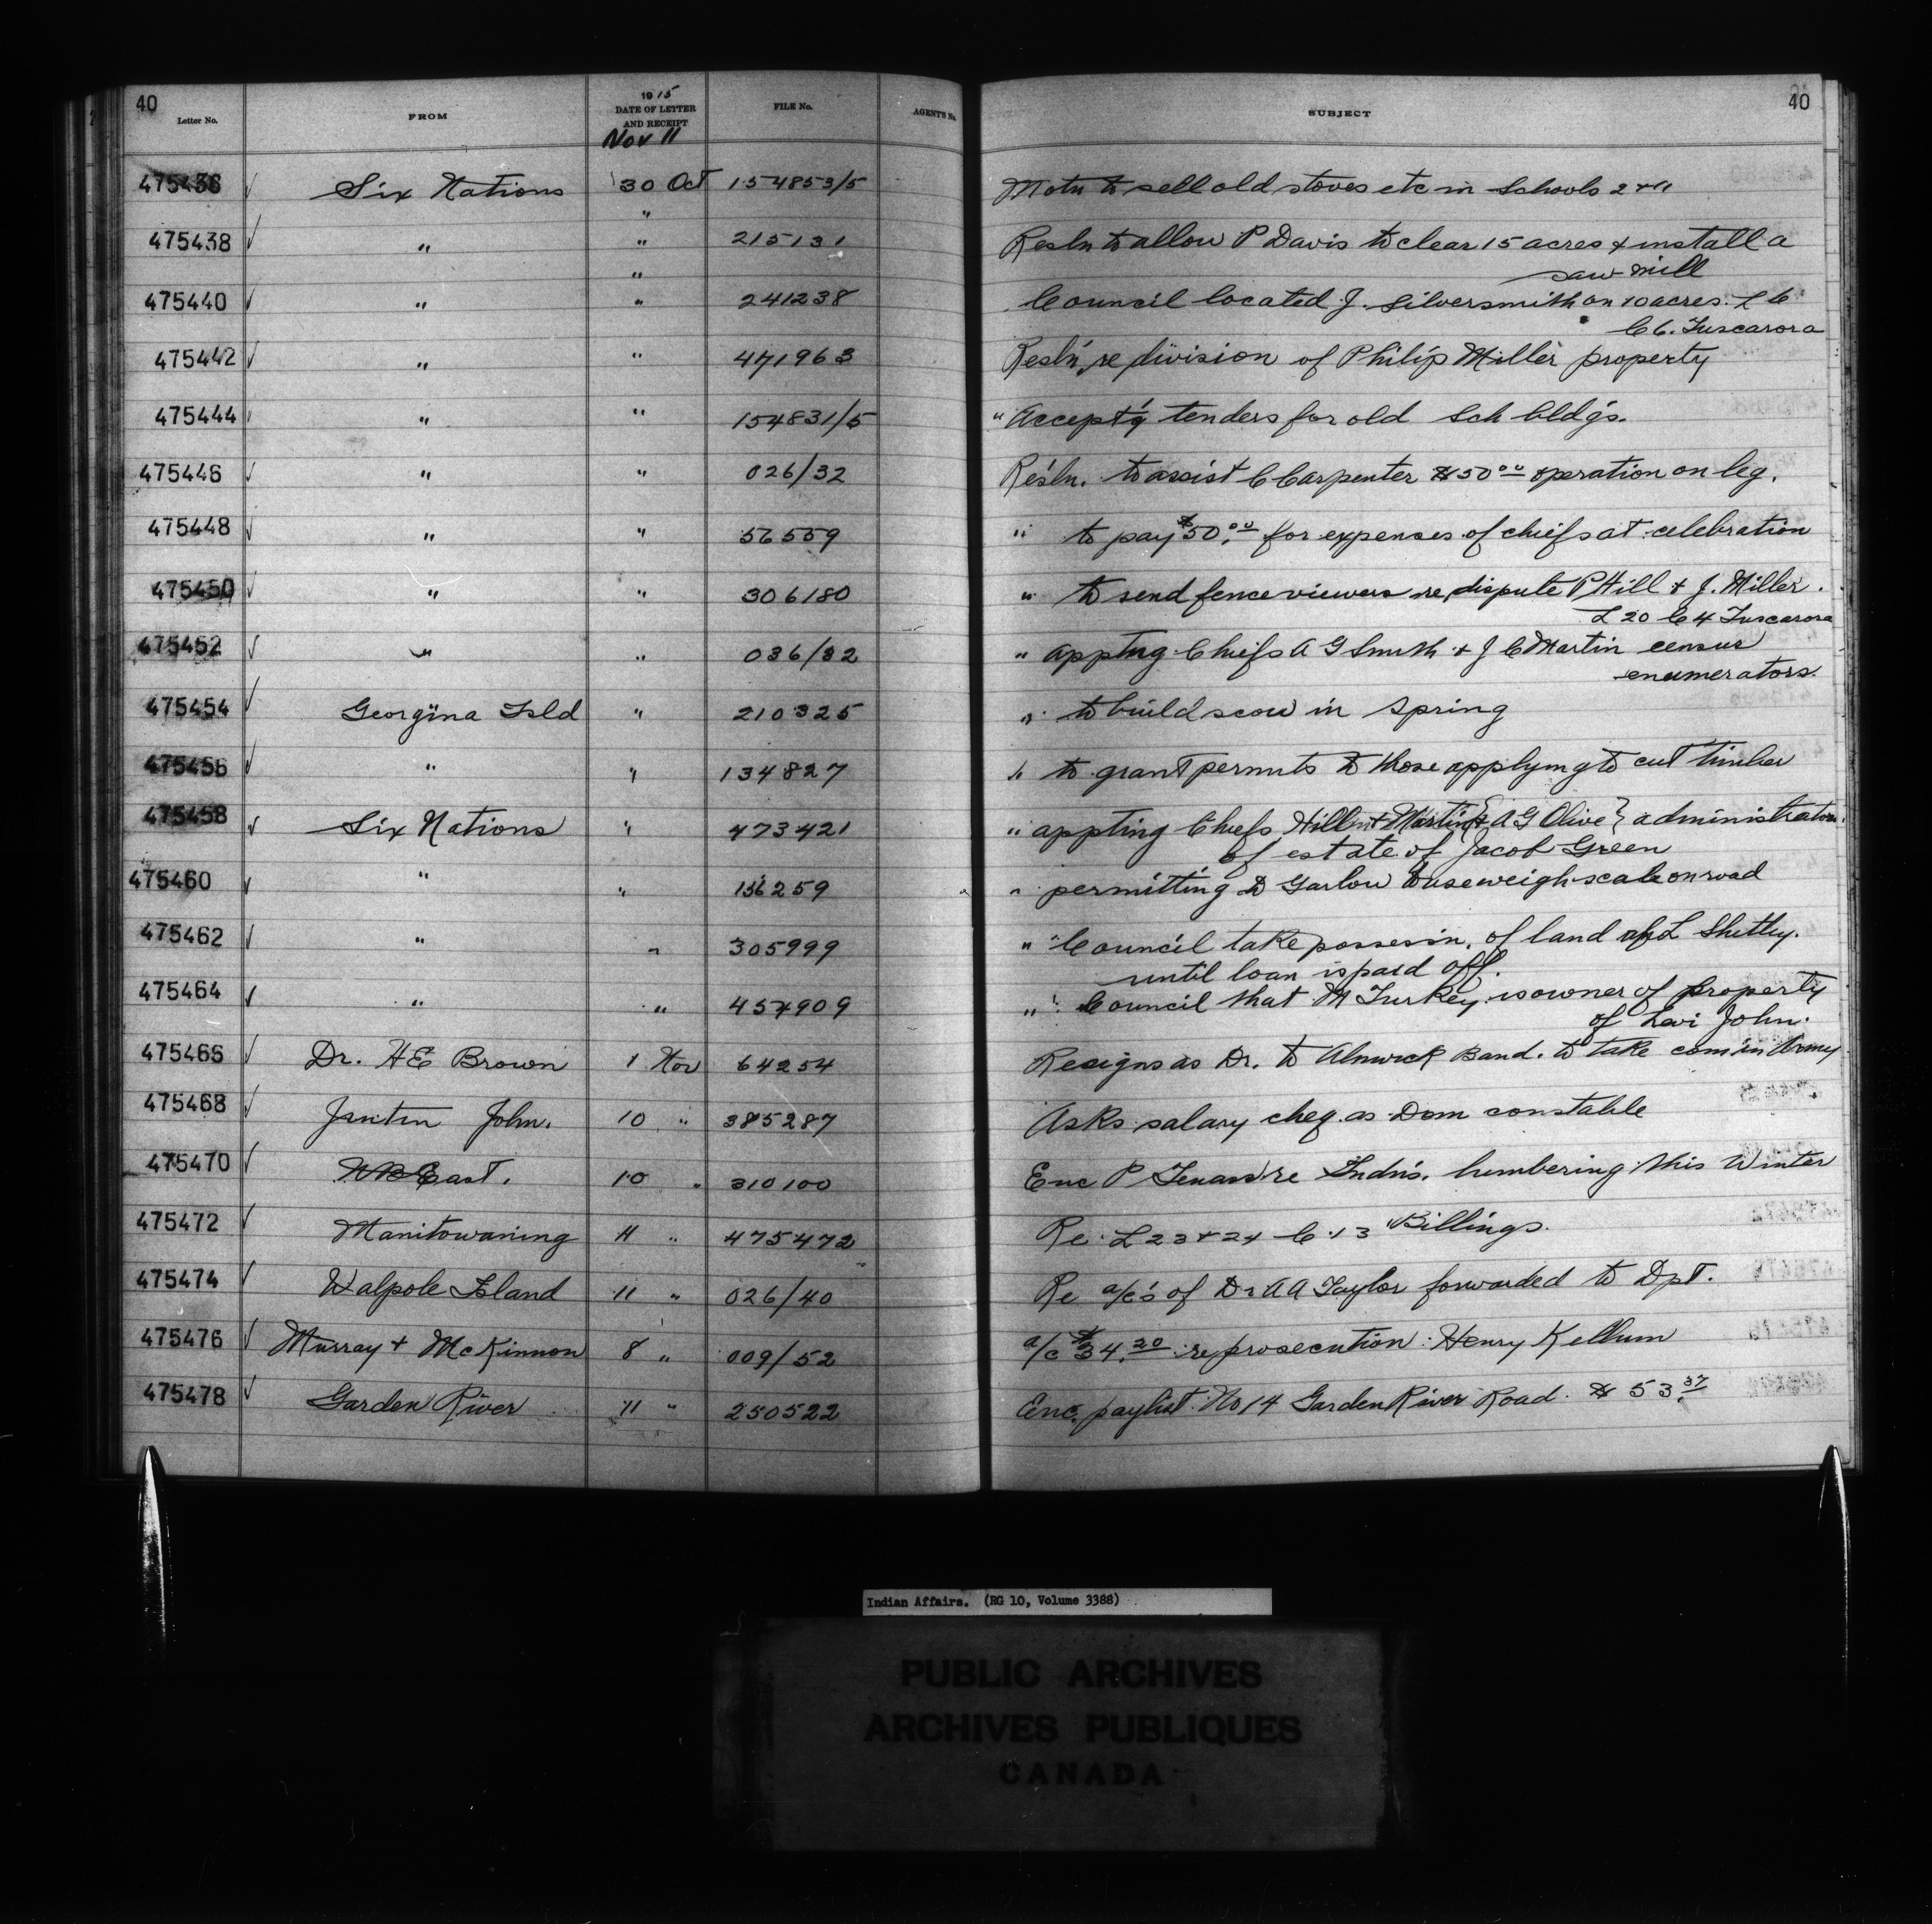 40
Letter No. FROM 1915 DATE OF LETTER AND RECEIPT FILE No. AGENT'S No. SUBJECT 40
Nov 11
475436 ✓ Six Nations 30 Oct 154853/5 Motn to sell old stoves etc in Schools 2 & 11
475438 ✓ " " 215131 Resln to allow P Davis to clear 15 acres & install a
saw mill
475440 ✓ " " 241238 Council located J. Silversmith on 10 acres. L 6
C 6. Tuscarora
475442 ✓ " " 471963 Resln, re division of Philip Miller property
475444 " " 154831/5 " Accept'g tenders for old Sch bldg's.
475446 ✓ " " 026/32 Resln. to assist C Carpenter $50.00 operation on leg.
475448 ✓ " " 56559 " to pay $50.00 for expenses of chiefs at celebration
475450 ✓ " " 306180 " to send fence viewers re dispute P Hill & J. Miller.
L 20 C 4 Tuscarora
475452 ✓ " " 036/32 " appting Chiefs A G Smith & J C Martin census
enumerators.
475454 ✓ Georgina Isld " 210325 " to build scow in Spring
475456 ✓ " " 134827 " to grant permits to those applying to cut timber
475458 ✓ Six Nations " 473421 " appting Chiefs Hill & Martin & A G Olive } administrators
of estate of Jacob Green
475460 ✓ " " 156259 " permitting D Garlow to use weigh scale on road
475462 ✓ " " 305999 " Council take possessn. of land of L Shetley.
until loan is paid off.
475464 ✓ " " 457909 " Council that M Turkey is owner of property
of Levi John.
475466 ✓ Dr. HE Brown 1 Nov 64254 Resigns as Dr. to Alnwick Band. to take com in Army
475468 ✓ John. 10 " 385287 Asks salary cheq. as Dom constable
475470 ✓ East. 10 " 310100 Enc P re Indns. lumbering this Winter
475472 ✓ Manitowaning 11 " 475472 Re L 23 & 24 C 13 Billings.
475474 ✓ Walpole Island 11 " 026/40 Re a/c's of Dr A A Taylor forwarded to Dpt.
475476 ✓ Murray & McKinnon 8 " 009/52 a/c $34.20 re prosecution: Henry Kellum
475478 ✓ Garden River 11 " 250522 Enc. paylist No 14 Garden River Road. $53.37
Indian Affairs. (RG 10, Volume 3388)
PUBLIC ARCHIVES
ARCHIVES PUBLIQUES
CANADA